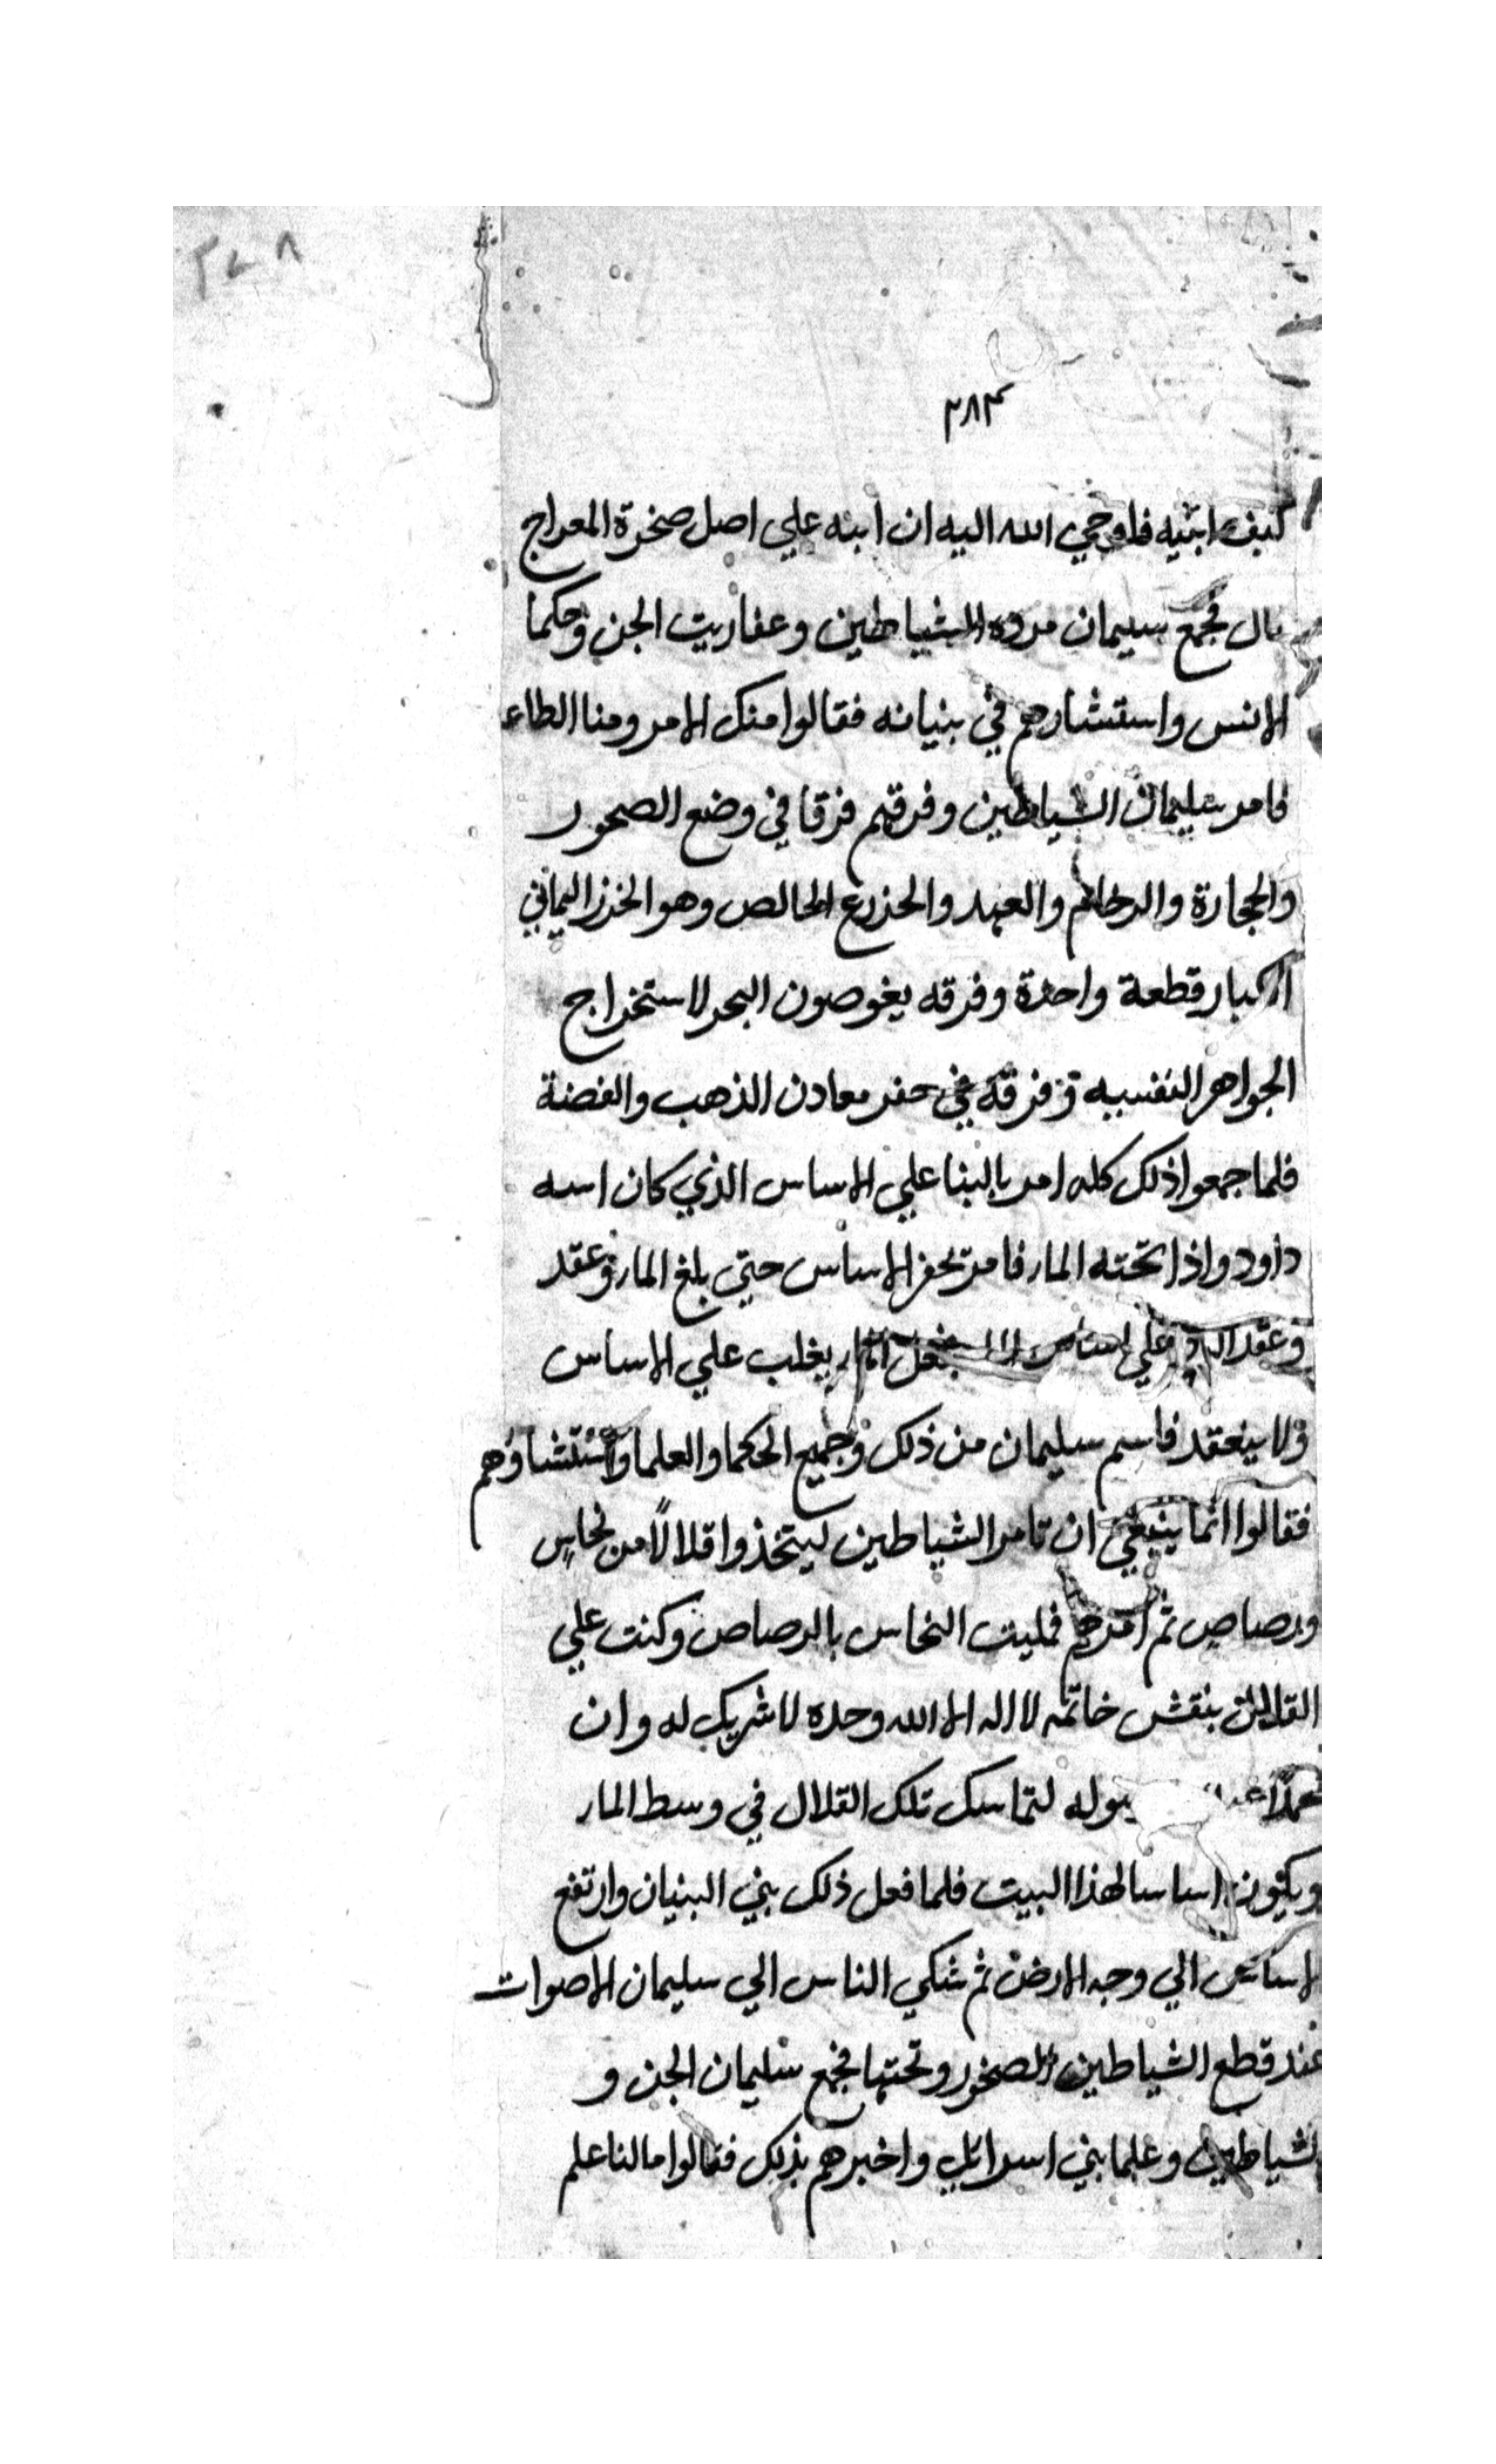 ٢٧٨
٣٨٣
كيف ابنيه فاوحي الله اليه ان ابنه علي اصل صخرة المعراج
قال فجمع سليمان مردة الشياطين وعفاريت الجن وحكما
الانس واستشارهم في بنيانه فقالوا منك الامر ومنا الطاعه
فامر سليمان الشياطين وفرقهم فرقا في وضع الصحور
والحجارة والرخام والعمد والجزع الخالص وهو الخرز اليماني
الكبار قطعة واحدة وفرقه يغوصون البحر لاستخراج
الجواهر النفسيه وفرقة في حفر معادن الذهب والفضة
فلما جمعوا ذلك كله امر بالبنا علي الاساس الذي كان اسه
داود واذا تحته الماء فامر بحفر الاساس حتي بلغ الماء وعقد
وعقد علي اساس فجعل الماء يغلب علي الاساس
ولا ينعقد فاسم سليمان من ذلك وجميع الحكما والعلما واستشاوهم
فقالوا انما ينبغي ان تامر الشياطين ليتخذوا قلالًا من نحاسٍ
ورصاصٍ ثم امرهم فمليت النحاس بالرصاص وكنت علي
القلال بنقش خاتمه لا اله الا الله وحده لا شريك له وان
محمدًا لتماسك تلك القلال في وسط الماء
ويكون اساسا لهذا البيت فلما فعل ذلك بني البنيان وارتفع
الاساس الي وجه الارض ثم شكي الناس الي سليمان الاصوات
عند قطع الشياطين الصخور ونحتها فجمع سليمان الجن و
الشياطين وعلما بني اسرائيل واخبرهم بذلك فقالوا ما لنا علم